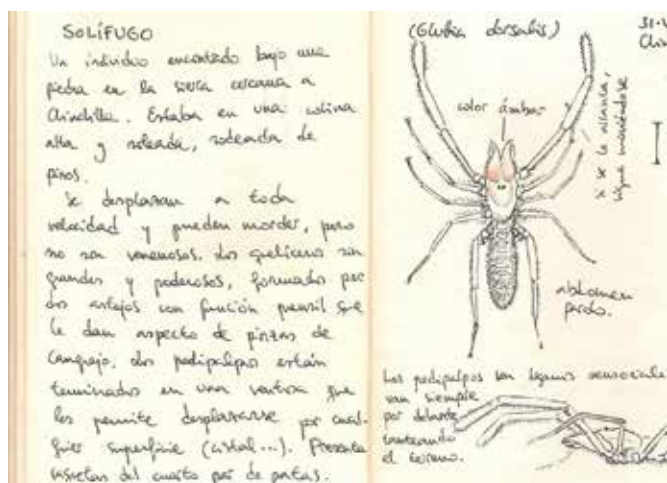 SOLÍFUGO
Un individuo encontrado bajo una
piedra en la sierra cercana a
Chinchilla. Estaba en una colina
alta y soleada, rodeada de
pinos.
Se desplazan a toda
velocidad y pueden morder, pero
no son venenosos. Los quelíceros son
grandes y poderosos, formados por
dos artejos con función prensil que
le dan aspecto de pinzas de
cangrejo. Los pedipalpos están
terminados en una ventosa que
les permite desplazarse por cual-
quier superficie (cristal...). Presenta
del cuarto par de patas.
(Gluvia dorsalis)
color ámbar
sigue moviéndose
abdomen
pardo.
Los pedipalpos son órganos sensoriales
van siempre
por delante
tanteando
el entorno.